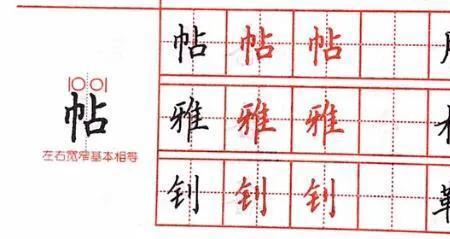 帖 帖 帖
10 01
帖
左右宽窄基本相等
雅 雅 雅
钊 钊 钊